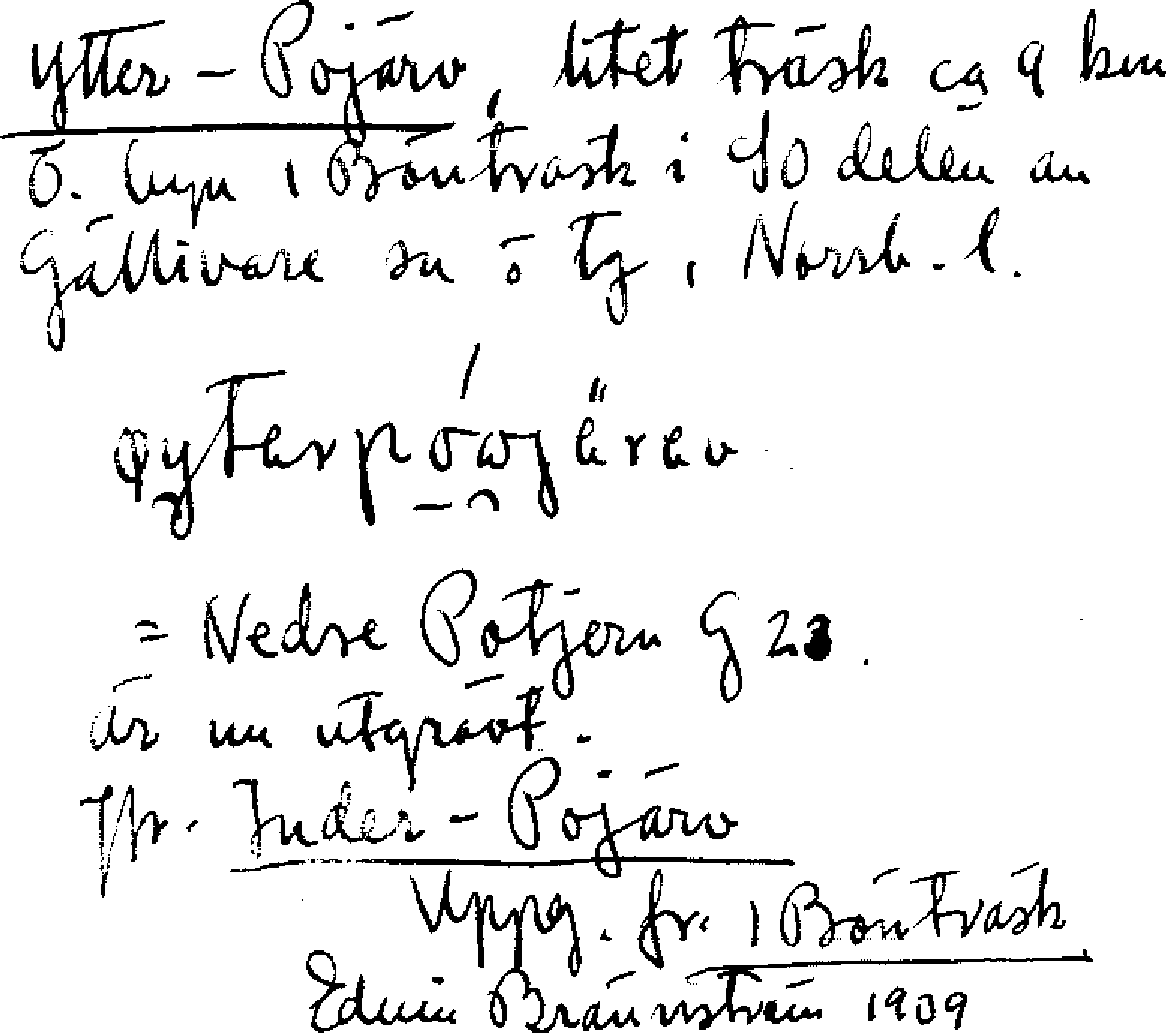 Ytter-Pojärv, litet träsk ca 9 km
ö. byn 1 Bönträsk i SO delen av
Gällivare sn o tg, Norrb. l.
= Nedre Potjern G 23.
är nu utgrävt.
Jfr. Inder-Pojärv
Uppg. fr. 1 Bönträsk
Edvin Brännström 1909